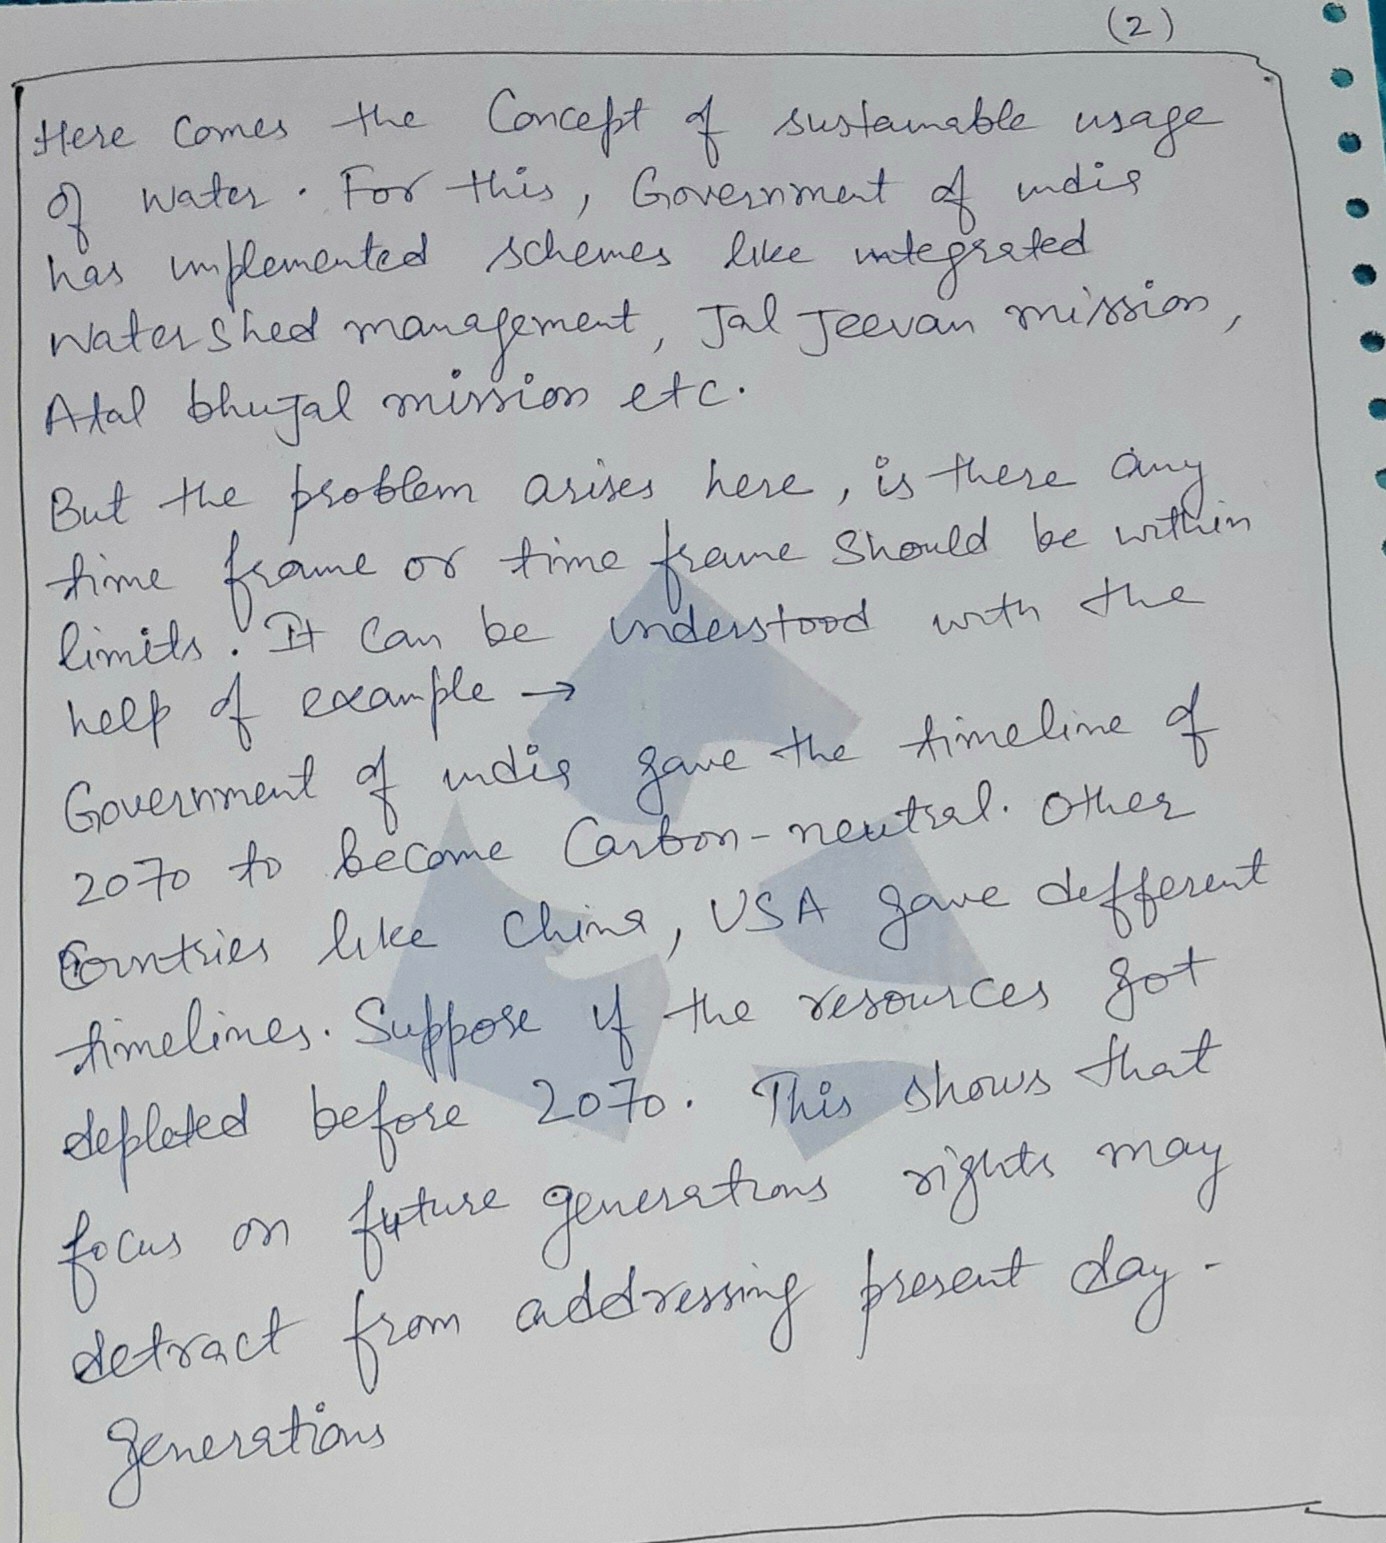 (2)
Here Comes the Concept of sustainable usage
of water. For this, Government of india
has implemented schemes like integrated
Watershed management, Jal Jeevan mission,
Atal bhujal mission etc.
But the problem arises here, is there any
time frame or time frame Should be within
limits. It Can be understood with the
help of example →
Government of india gave the timeline of
2070 to become Carbon-neutral. Other
Countries like China, USA gave defferent
timelines. Suppose if the resources got
depleted before 2070. This shows that
focus on future generations rights may
detract from addressing present day-
generations